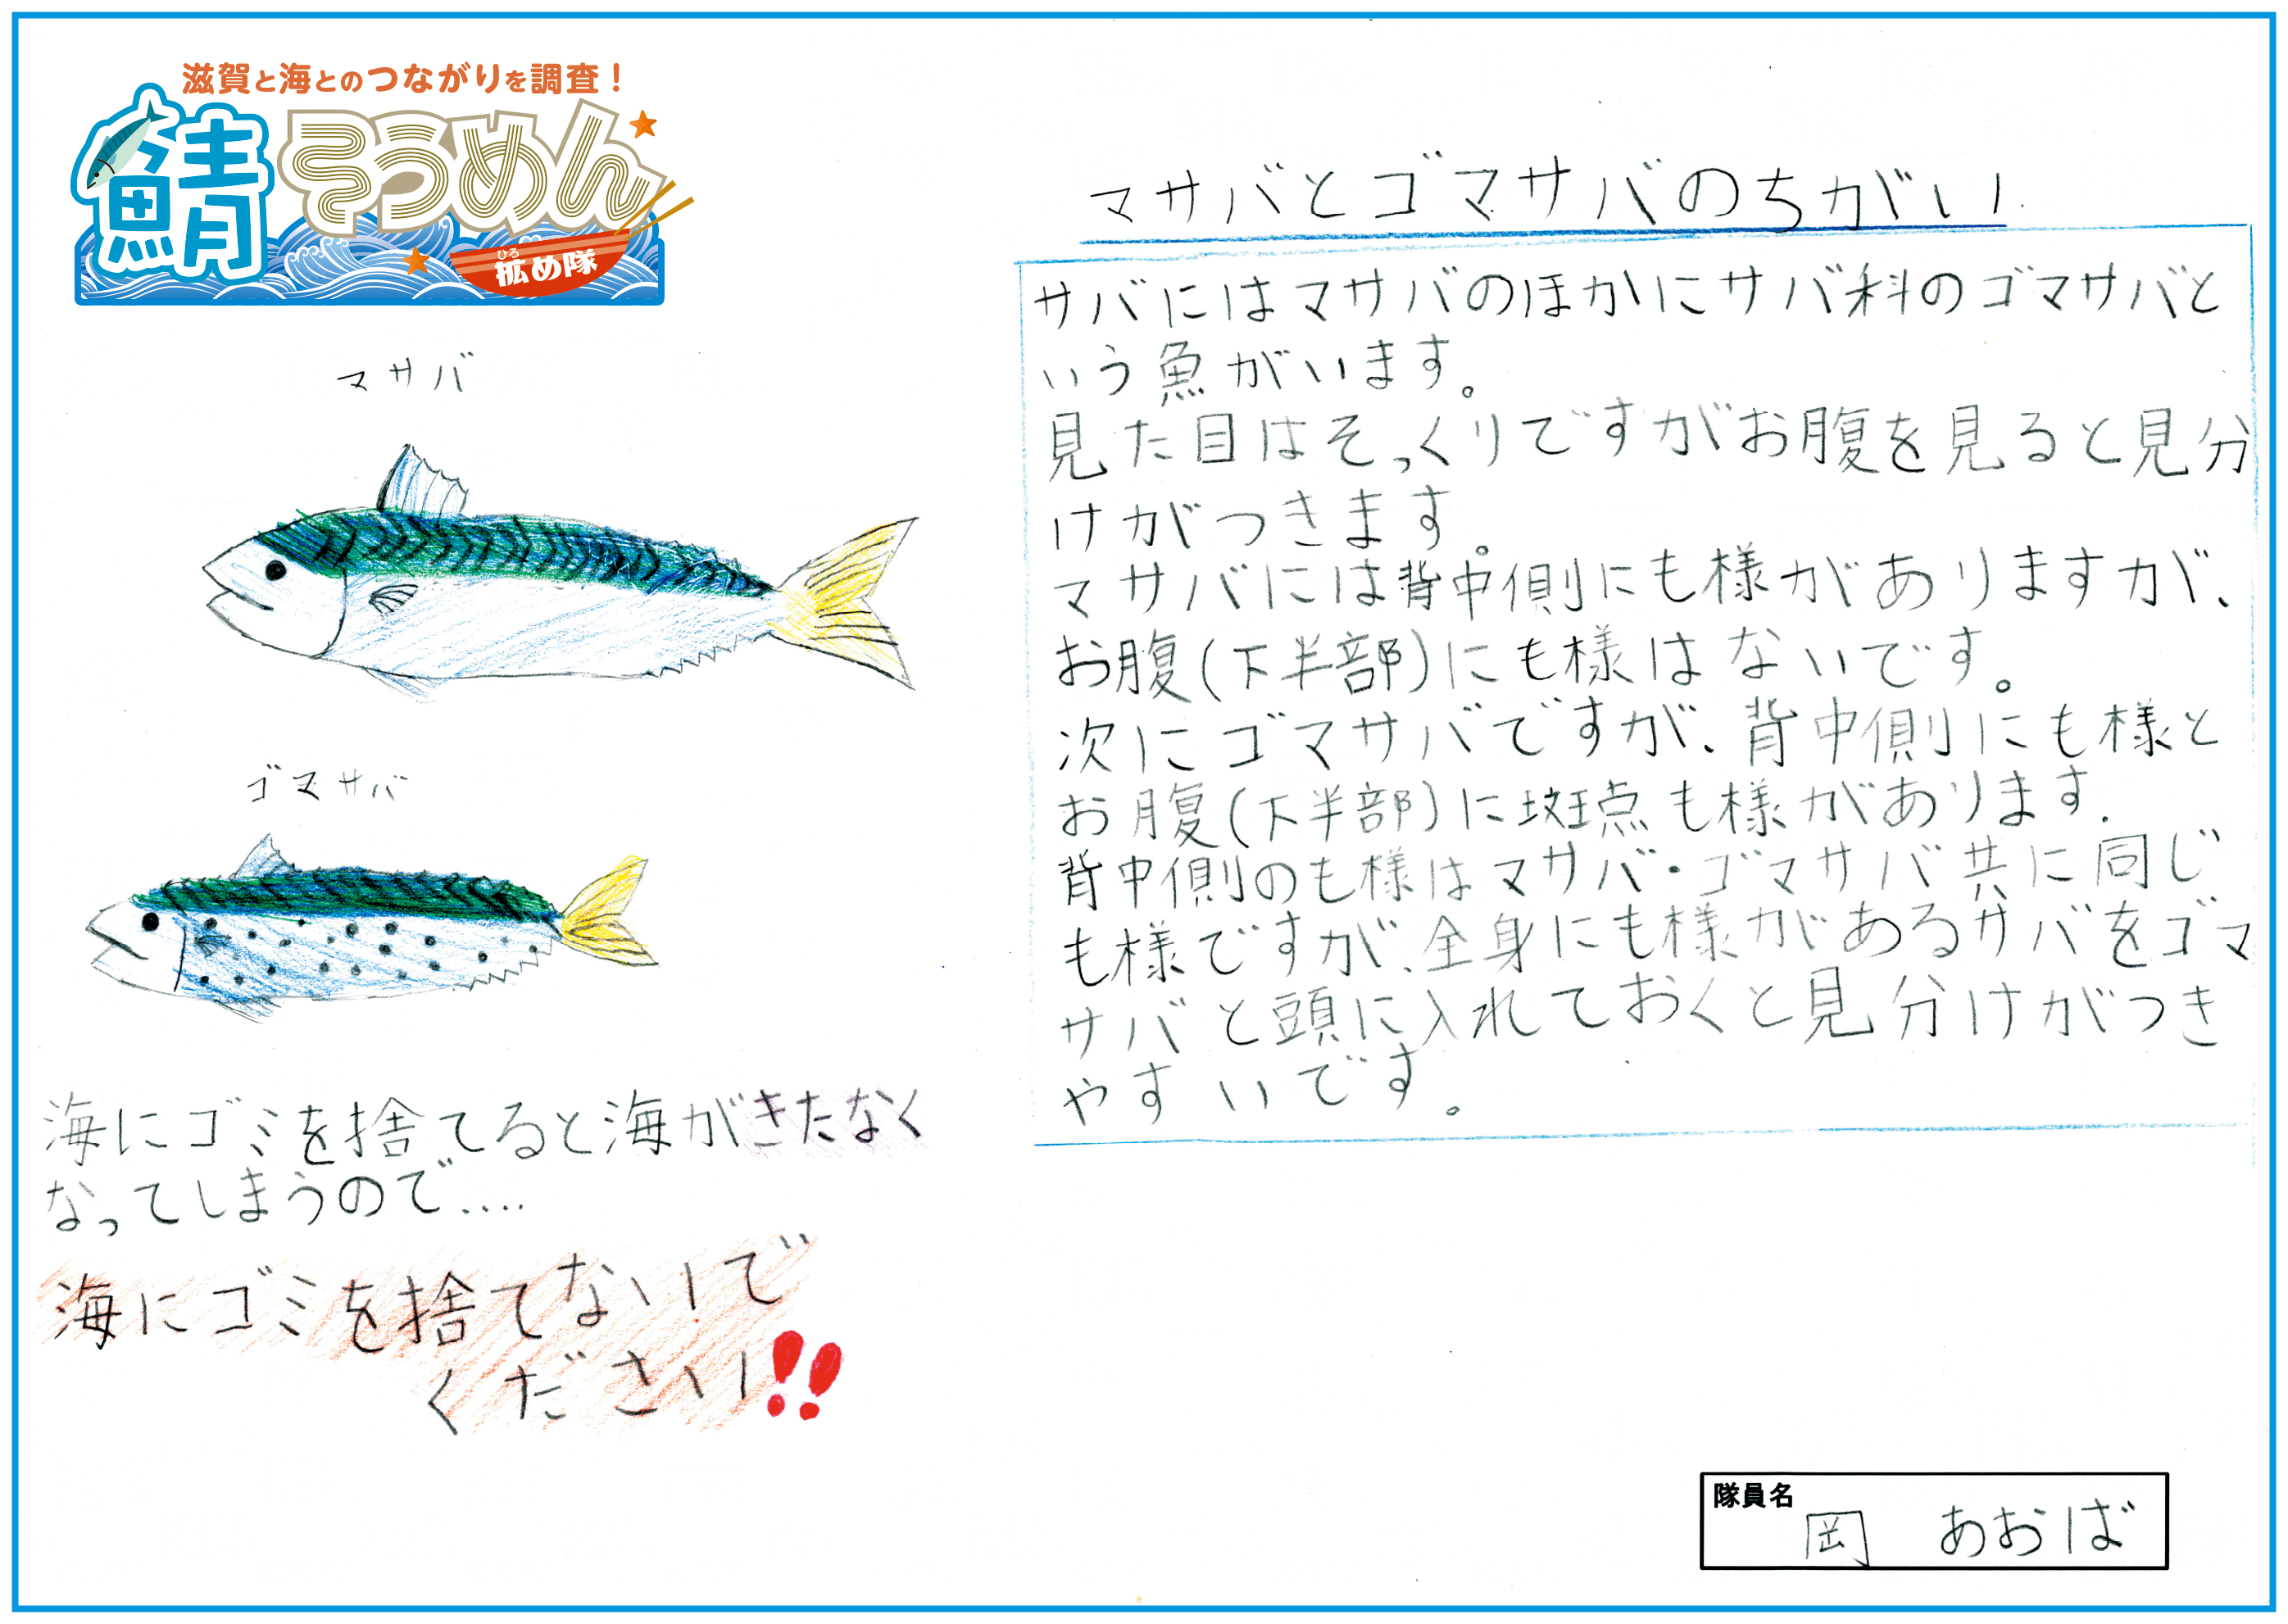 滋賀と海とのつながりを調査！
鯖そうめん
ひろ
拡め隊
マサバ
ゴマサバ
海にゴミを捨てると海がきたなく
なってしまうので....
海にゴミを捨てないで
ください!!
マサバとゴマサバのちがい
サバにはマサバのほかにサバ科のゴマサバと
いう魚がいます。
見た目はそっくりですがお腹を見ると見分
けがつきます。
マサバには背中側にも様がありますが、
お腹(下半部)にも様はないです。
次にゴマサバですが、背中側にも様と
お腹(下半部)に斑点も様があります.
背中側のも様はマサバ・ゴマサバ共に同じ
も様ですが、全身にも様があるサバをゴマ
サバと頭に入れておくと見分けがつき
やすいです。
隊員名
岡 あおば